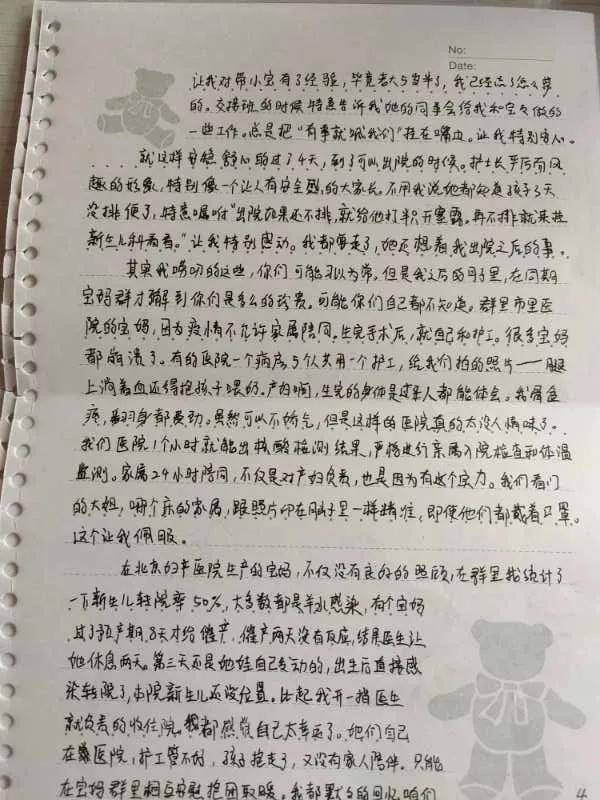 No:
Date:
让我对带小宝有了经验，毕竟老大5岁半了，我已经忘了怎么带
的。交接班的时候特意告诉我她的同事会给我和宝宝做的
一些工作。总是把“有事就喊我们”挂在嘴边。让我特别安心。
就这样安稳舒心的过了4天，到了可以出院的时候。护士长严厉而风
趣的形象，特别像一个让人有安全感的大家长。不用我说她都知道孩子3天
没排便了，特意嘱咐“出院如果还不排，就给他打半只开塞露。再不排就来挂
新生儿科看看。”让我特别感动。我都要走了，她还想着我出院之后的事。
其实我唠叨的这些，你们可能习以为常。但是我之后的月子里，在同期
宝妈群才了解到你们是多么的珍贵。可能你们自己都不知道。群里市里医
院的宝妈，因为疫情不允许家属陪同。生完手术后，就自己和护工。很多宝妈
都崩溃了。有的医院一个病房5个人共用一个护工，给我们拍的照片——腿
上淌着血还得抱孩子喂奶。产妇啊，生完的身体是过来人都能体会。我骨盆
疼，翻身都费劲。虽然可以不娇气，但是这样的医院真的太没人情味了。
我们医院1个小时就能出核酸检测结果，严格进行亲属入院检查和体温
监测。家属24小时陪同，不仅是对产妇负责，也是因为有这个实力。我们看门
的大姐，哪个床的家属，跟照片印在脑子里一样精准，即使他们都戴着口罩。
这个让我佩服。
在北京妇产医院生产的宝妈，不仅没有良好的照顾，在群里我统计了
一下新生儿转院率50%，大多数都是羊水感染，有个宝妈
过了预产期8天才给催产，催产两天没有反应，结果医生让
她休息两天。第三天还是她娃自己发动的，出生后直接感
染转院了，本院新生儿还没位置。比起我开一指医生
就负责的收住院。我都感觉自己太幸运了。她们自己
在医院，护工管不好，孩子抱走了，又没有家人陪伴。只能
在宝妈群里相互安慰抱团取暖。我都默默的回忆咱们
4